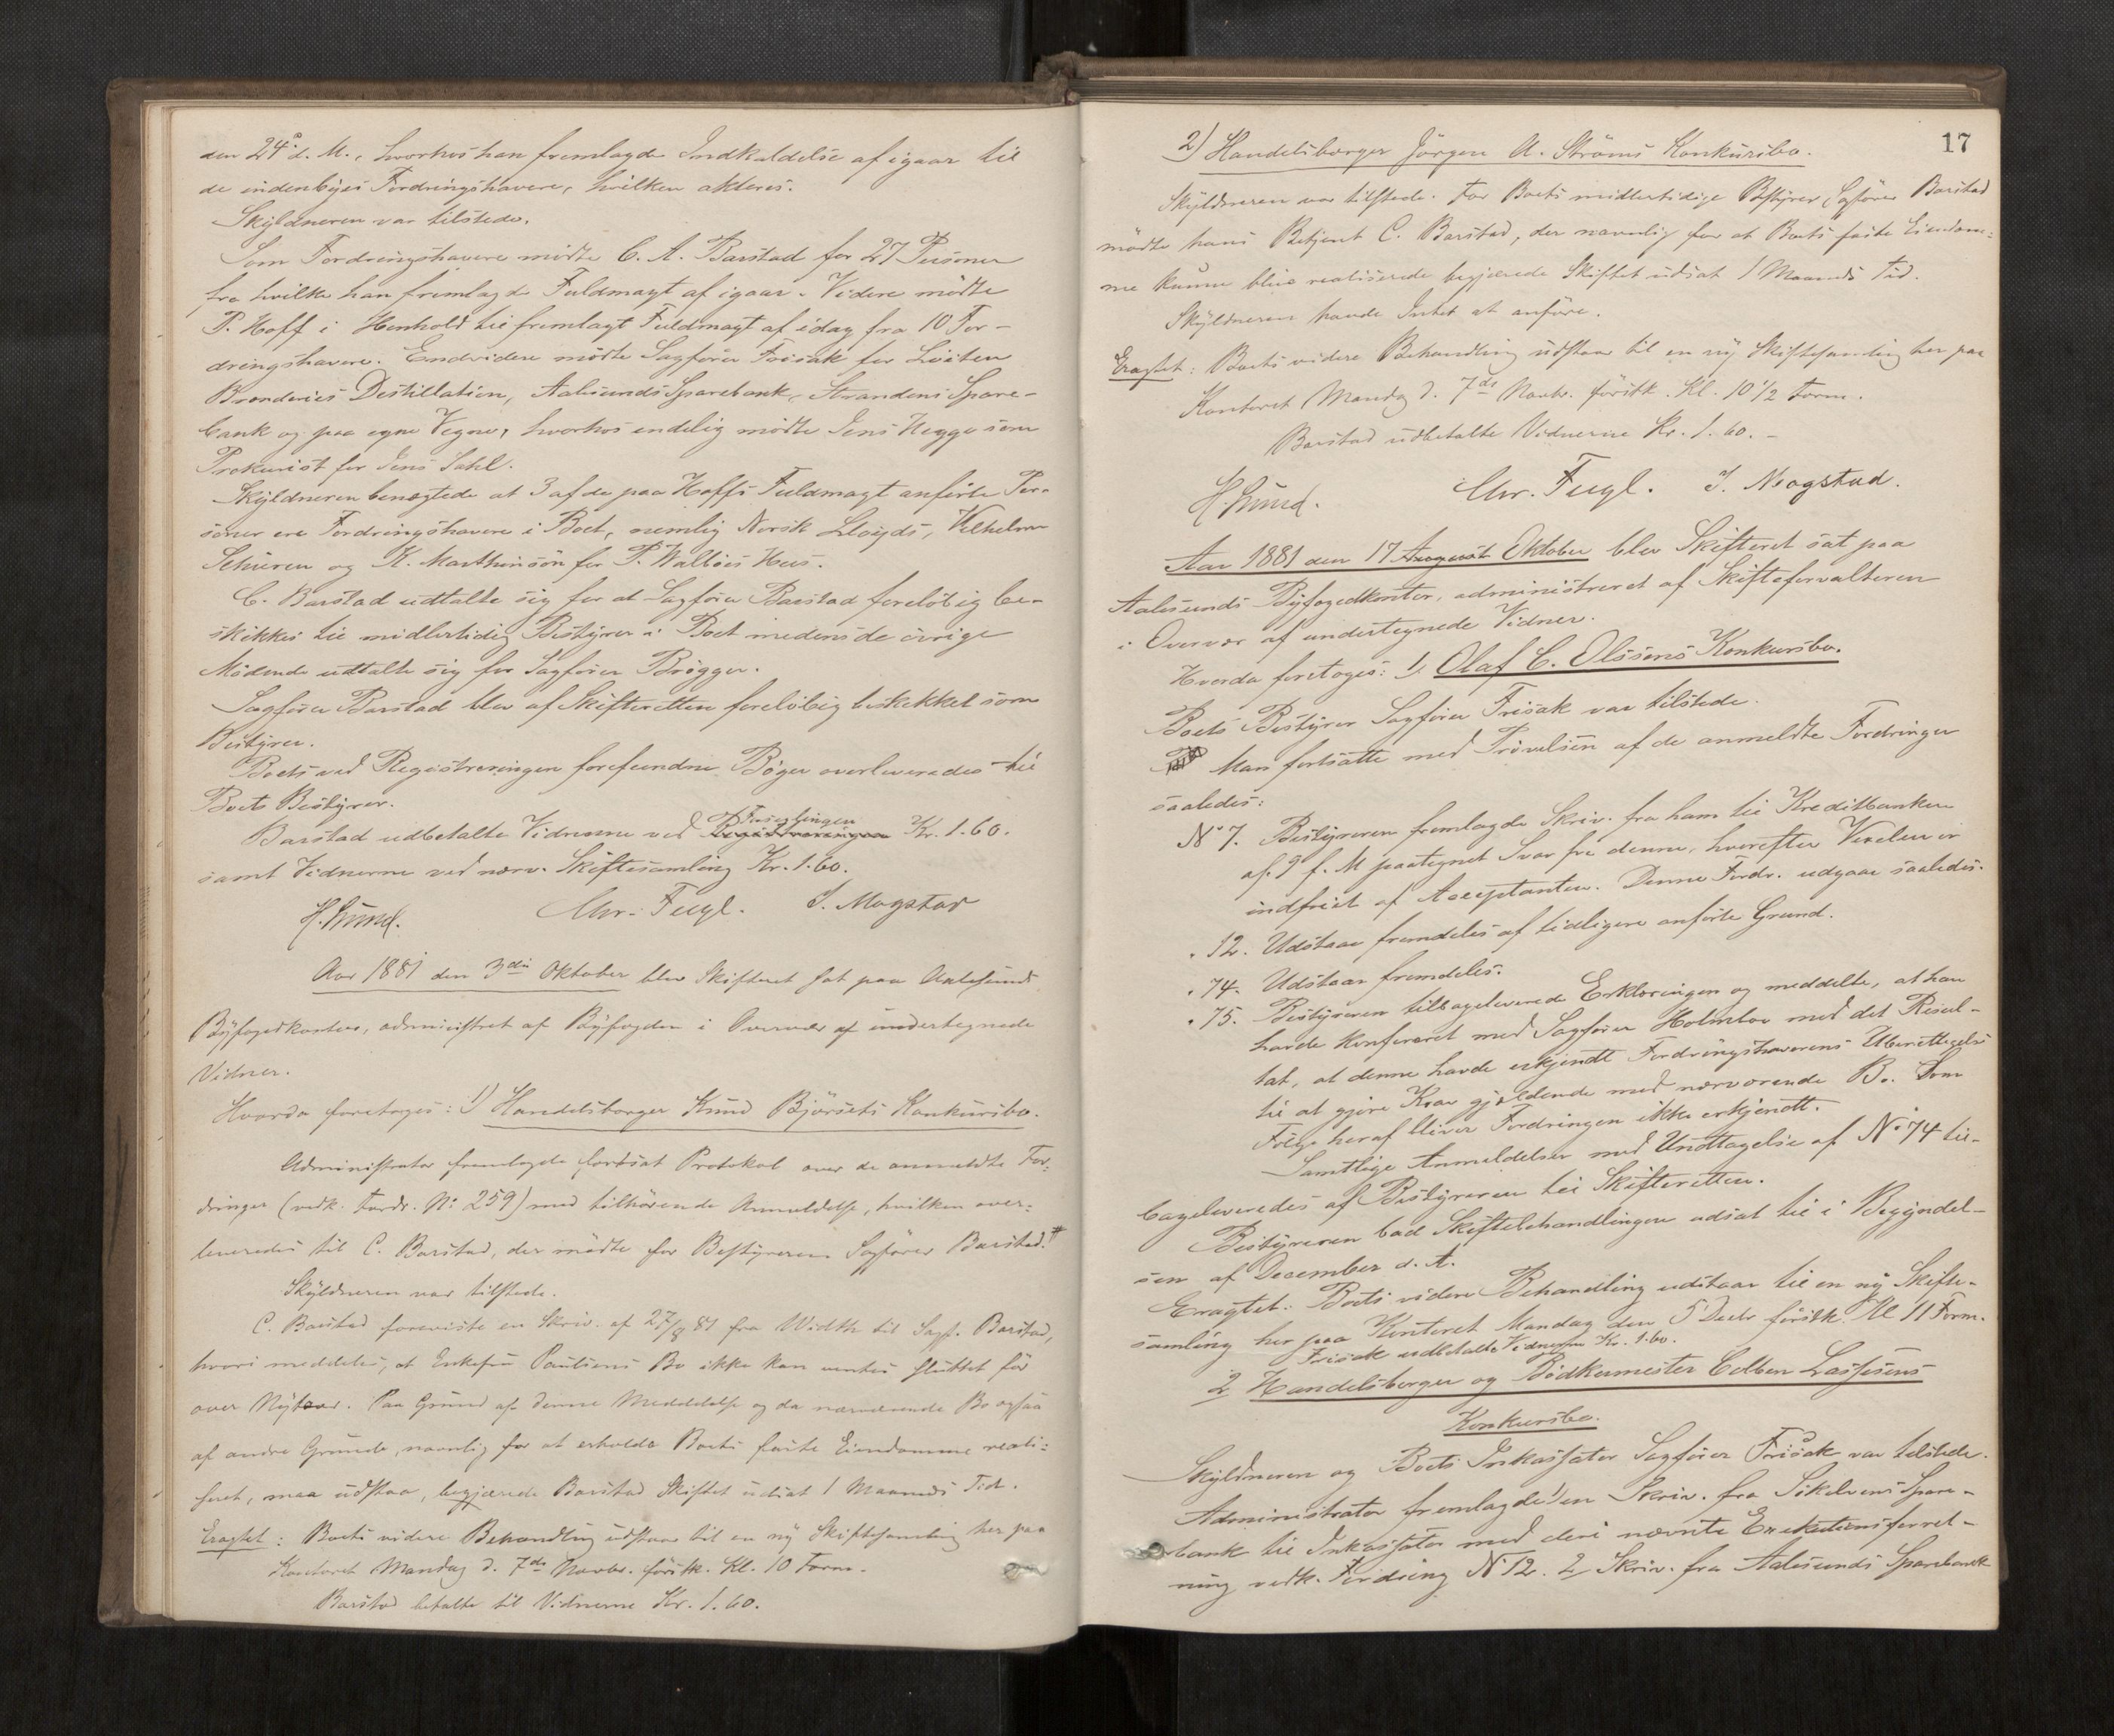 den 24de d. M., hvorhos han fremlagde Indkaldelse af igaar til
de indenbyes Fordringshavere, hvilken akteres.
Skyldneren var tilstede.
Som Fordringshavere mødte C. A. Barstad for 27 Personer
fra hvilke han fremlagde Fuldmagt af igaar. Videre mødte
P. Hoff i Henhold til fremlagt Fuldmagt af idag fra 10 For-
dringshavere. Endvidere mødte Sagfører Frisak for Løiten
Brænderies Destillation, Aalesunds Sparebank, Strandens Spare-
bank og paa egne Vegne, hvorhos endelig mødte Jens Hegge som
Prokurist for Jens Dahl.
Skyldneren benægtede at 3 af de paa Hoffs Fuldmagt anførte Per-
soner ere Fordringshavere i Boet, nemlig Norsk Lloyds, Vilhelm
Schüren og K. Marthinsøn for P. Walbøes Hus.
C. Barstad udtalte sig for at Sagfører Barstad foreløbig be-
skikkes til midlertidig Bestyrer i Boet medens de øvrige
Mødende udtalte sig for Sagfører Brøgger.
Sagfører Barstad blev af Skifteretten foreløbig beskikket som
Bestyrer.
Boets ved Registreringen forefundne Bøger overleveredes til
Boets Bestyrer.
Forseglingen
Barstad udbetalte Vidnerne ved Registreringen Kr. 1.60.
samt Vidnerne ved nærv. Skiftesamling Kr. 1.60.
H. Lund. Chr. Fugl. I. Mogstad
Aar 1881 den 3die Oktober blev Skifteret sat paa Aalesund
Byfogedkontor, administret af Byfogden i Overvær af undertegnede
Vidner.
Hvorda foretoges: 1) Handelsborger Knud Bjørsets Konkursbo.
Administrator fremlagde fortsat Protokol over de anmeldte For-
dringer (vedk. Fordr. No 259) med tilhørende Anmeldelse, hvilken over-
leveredes til C. Barstad, der mødte for Bestyreren Sagfører Barstad. #
Skyldneren var tilstede.
C. Barstad foreviste en Skriv. af 27/8 81 fra Width til Sagf. Barstad,
hvori meddeles, at Enkefru Paulsens Bo ikke kan ventes sluttet før
over Nytaar. Paa Grund af denne Meddelelse og da nærværende Bo ogsaa
af andre Grunde, navnlig for at erholde Boets faste Eiendomme reali-
seret, maa udstaa, begjærede Barstad Skiftet udsat 1 Maaneds Tid.
Eragtet: Boets videre Behandling udstaar til en ny Skiftesamling her paa
Kontoret Mandag d. 7de Novbr. førstk. Kl. 10 Form.
Barstad betalte til Vidnerne Kr. 1.60.
17
2) Handelsborger Jørgen A. Strøms Konkursbo.
Skyldneren var tilstede. For Boets midlertidige Bestyrer Sagfører Barstad
mødte hans Betjent C. Barstad, der navnlig for at Boets faste Eiendom-
me kunne blive realiserede begjærede Skiftet udsat 1 Maaneds Tid.
Skyldneren havde Intet at anføre.
Eragtet: Boets videre Behandling udstaar til en ny Skiftesamling her paa
Kontoret Mandag d. 7de Novbr. førstk. Kl. 10 1/2 Form.
Barstad udbetalte Vidnerne Kr. 1.60.-
H. Lund. Chr. Fugl. I. Mogstad.
Aar 1881 den 17 August Oktober blev Skifteret sat paa
Aalesunds Byfogedkontor, administreret af Skifteforvalteren
i Overvær af undertegnede Vidner.
Hvorda foretoges: 1. Olaf C. Olssens Konkursbo.
Boets Bestyrer Sagfører Frisak var tilstede.
Man fortsatte med Prøvelsen af de anmeldte Fordringer
saaledes:
No 7. Bestyreren fremlagde Skriv. fra ham til Kreditbanken
af 9 f. M paategnet Svar fra denne, hvorefter Vexelen er
indfriet af Acceptanten. Denne Fordr. udgaar saaledes.
" 12. Udstaar fremdeles af tidligere anførte Grund.
" 74. Udstaar fremdeles.
" 75. Bestyreren tilbageleverede Erklæringen og meddelte, at han
havde konfereret med Sagfører Holmboe med det Resul-
tat, at denne havde erkjendt Fordringshaverens Uberettigelse
til at gjøre Krav gjældende mod nærværende Bo. Som
Følge heraf bliver Fordringen ikke erkjendt.
Samtlige Anmeldelser med Undtagelse af No 74 til-
bageleveredes af Bestyreren til Skifteretten.
Bestyreren bad Skiftebehandlingen udsat til i Begyndel-
sen af December d. A.
Eragtet: Boets videre Behandling udstaar til en ny Skifte-
samling her paa Kontoret Mandag den 5 Decbr førstk. Kl 11 Form.
Frisak udbetalte Vidnerne Kr. 1.60.
2 Handelsborger og Bødkermester Colben Lassesens
Konkursbo.
Skyldneren og Boets Inkassator Sagfører Frisak var tilstede.
Administrator fremlagde 1 en Skriv. fra Sikelvens Spare-
bank til Inkassator med deri nævnte Exekutionsforret-
ning vedk. Fordring No 12. 2 Skriv. fra Aalesunds Sparebank